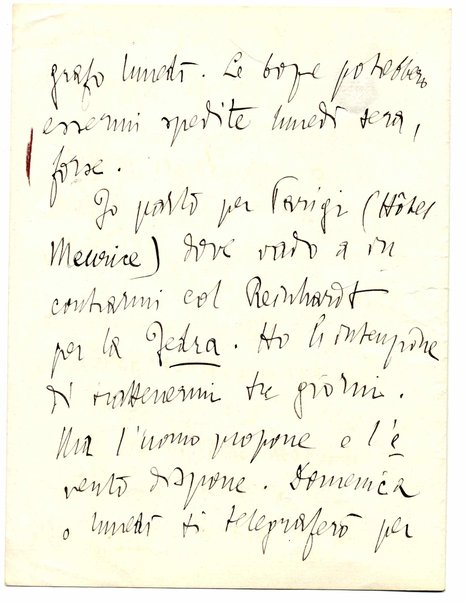 grafo lunedì. Le boze potrebbero
essermi spedite lunedì sera,
forse.
Io parto per Parigi (Hôtel
Meurice) dove vado a in
contrarmi col Reinhardt
per la Fedra. Ho l'intenzione
di trattenermi tre giorni.
Ma l'uomo propone e l'e
vento dispone. Domenica
o lunedì ti telegraferò per